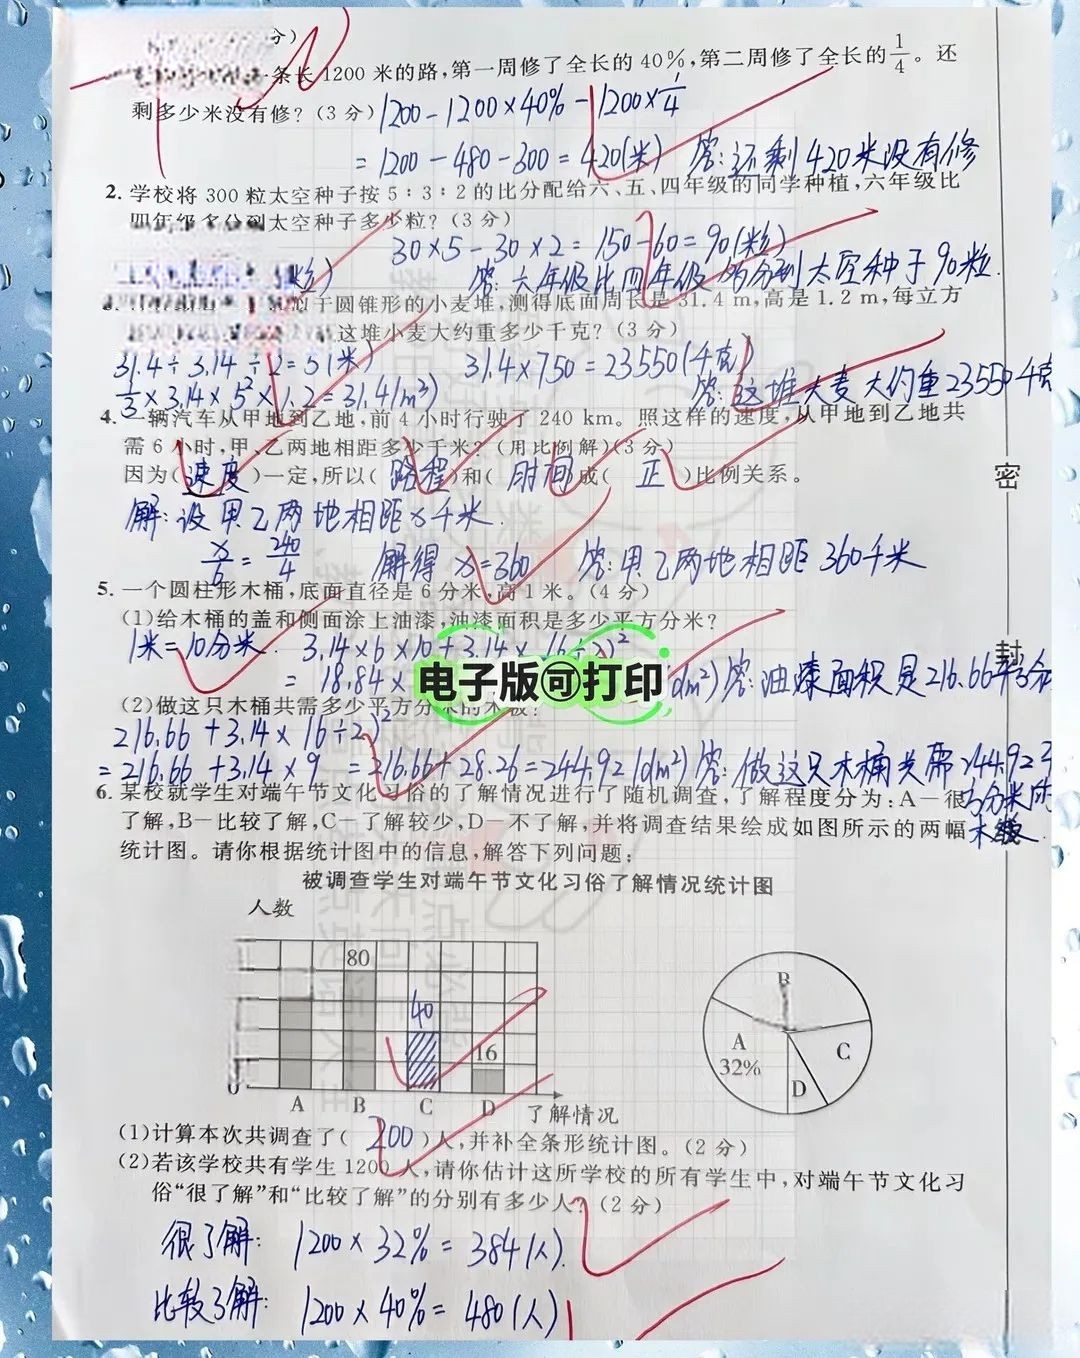 分)
条长1200米的路,第一周修了全长的40%,第二周修了全长的1/4。还
剩多少米没有修?(3分) 1200-1200×40%-1200×1/4
=1200-480-300=420(米) 答:还剩420米没有修
2. 学校将300粒太空种子按5:3:2的比分配给六、五、四年级的同学种植,六年级比
四年级多分到太空种子多少粒?(3分)
30×5-30×2=150-60=90(粒)
粒) 答:六年级比四年级多分到太空种子90粒.
于圆锥形的小麦堆,测得底面周长是31.4m,高是1.2m,每立方
这堆小麦大约重多少千克?(3分)
31.4÷3.14÷2=5(米) 31.4×750=23550(千克)
1/3×3.14×5²×1.2=31.4(m³) 答:这堆大麦大约重23550千克
4. 一辆汽车从甲地到乙地,前4小时行驶了240km。照这样的速度,从甲地到乙地共
需6小时,甲、乙两地相距多少千米?(用比例解)(3分)
因为(速度)一定,所以(路程)和(时间)成(正)比例关系。
解:设甲乙两地相距x千米.
x/6=240/4 解得x=360 答:甲乙两地相距360千米
密
5. 一个圆柱形木桶,底面直径是6分米,高1米。(4分)
(1)给木桶的盖和侧面涂上油漆,油漆面积是多少平方分米?
1米=10分米. 3.14×6×10+3.14×(6÷2)²
封
=18.84× (dm²) 答:油漆面积是216.66平方分
电子版可打印
(2)做这只木桶共需多少平方分米的木板?
216.66+3.14×(6÷2)²
=216.66+3.14×9=216.66+28.26=244.92(dm²) 答:做这只木桶共需244.92平
方分米的
木板.
6. 某校就学生对端午节文化习俗的了解情况进行了随机调查,了解程度分为:A—很
了解,B—比较了解,C—了解较少,D—不了解,并将调查结果绘成如图所示的两幅
统计图。请你根据统计图中的信息,解答下列问题:
被调查学生对端午节文化习俗了解情况统计图
人数
80
40
16
0
A B C D 了解情况
B
A
32%
C
D
(1)计算本次共调查了(200)人,并补全条形统计图。(2分)
(2)若该学校共有学生1200人,请你估计这所学校的所有学生中,对端午节文化习
俗“很了解”和“比较了解”的分别有多少人?(2分)
很了解: 1200×32%=384(人).
比较了解: 1200×40%=480(人)